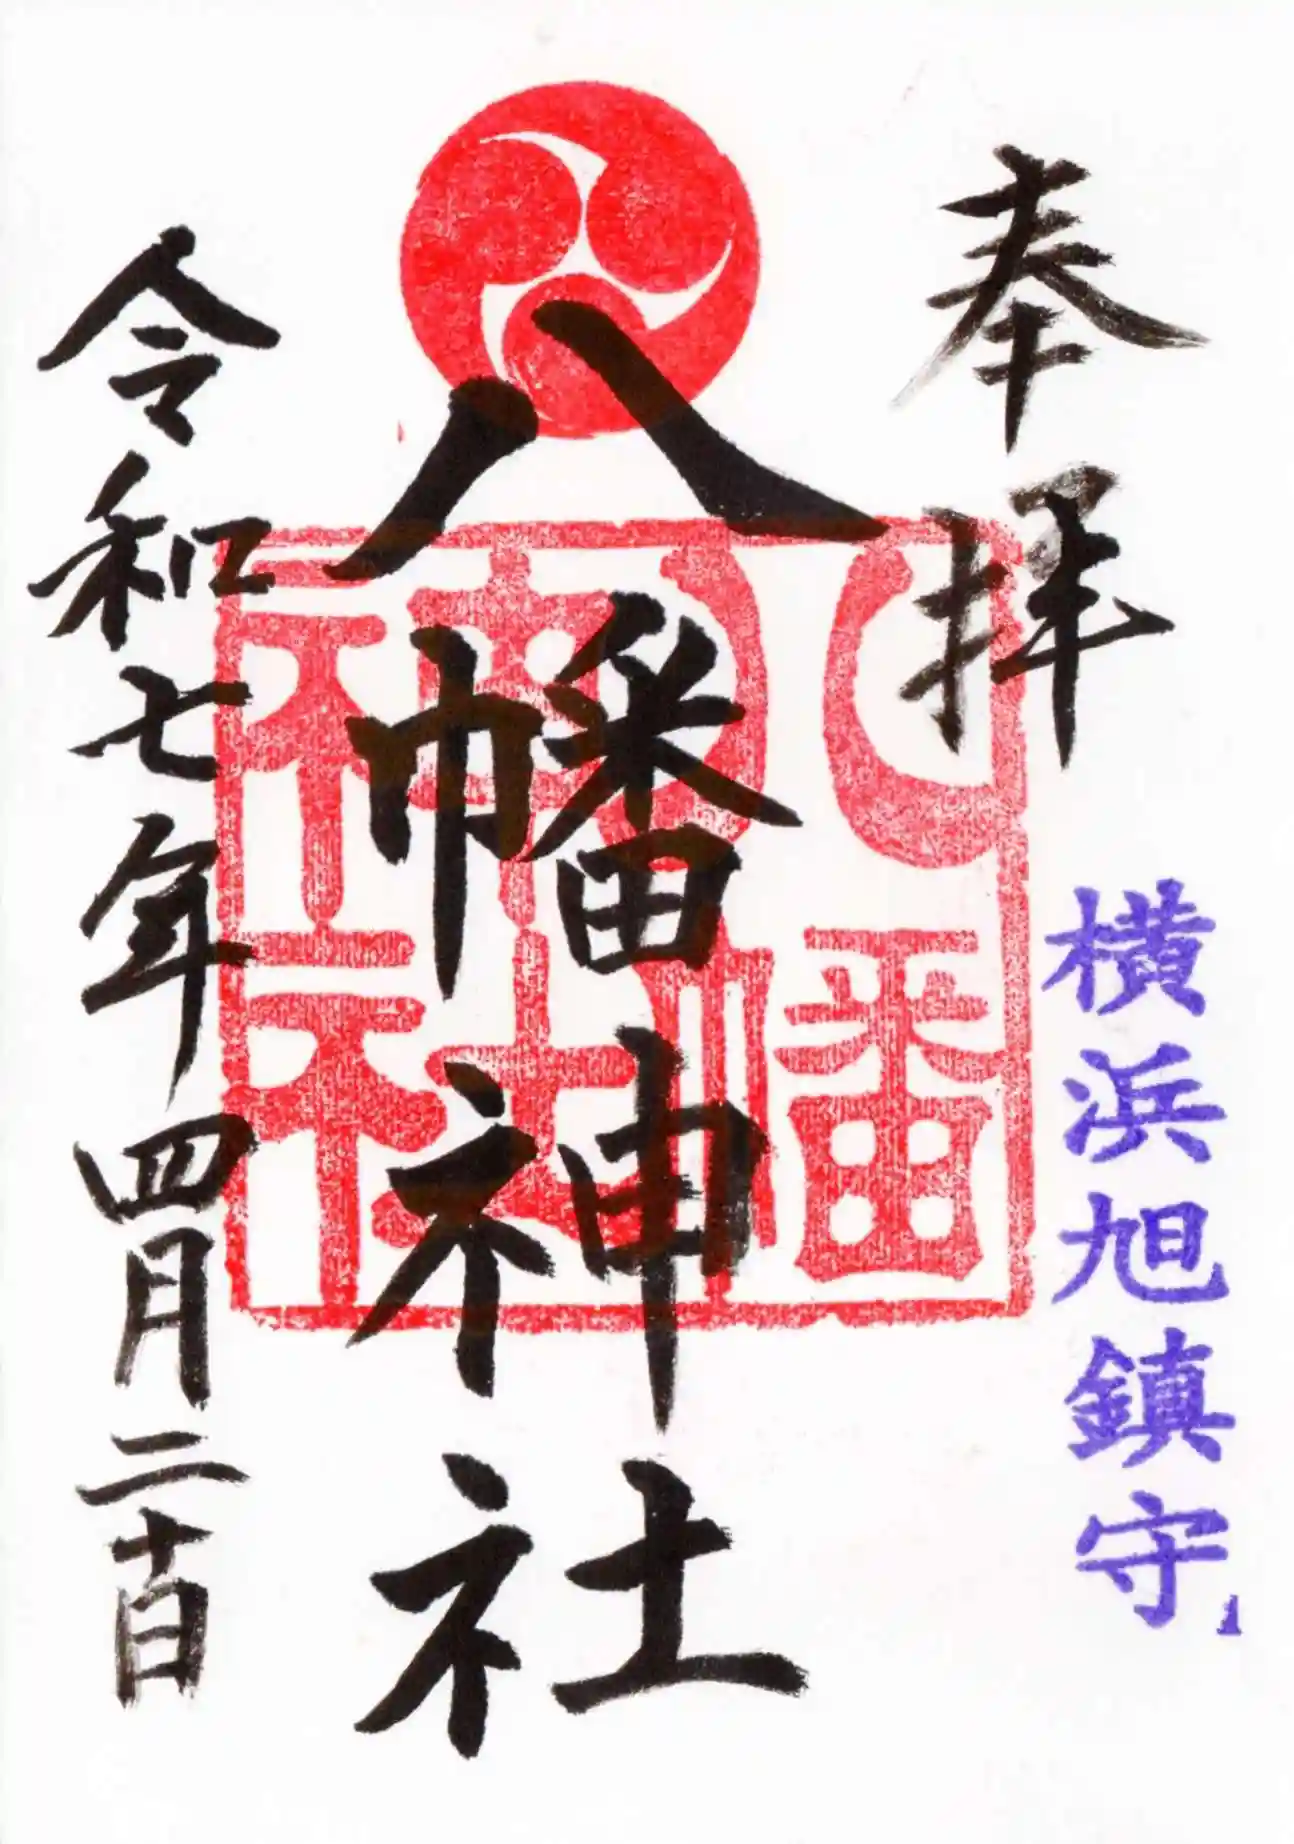 奉拝
横浜旭鎮守
八幡神社
八幡
神社
令和七年四月二十日